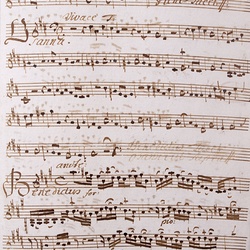 Vivace
Osanna
andte:
Benedictus for
pia: